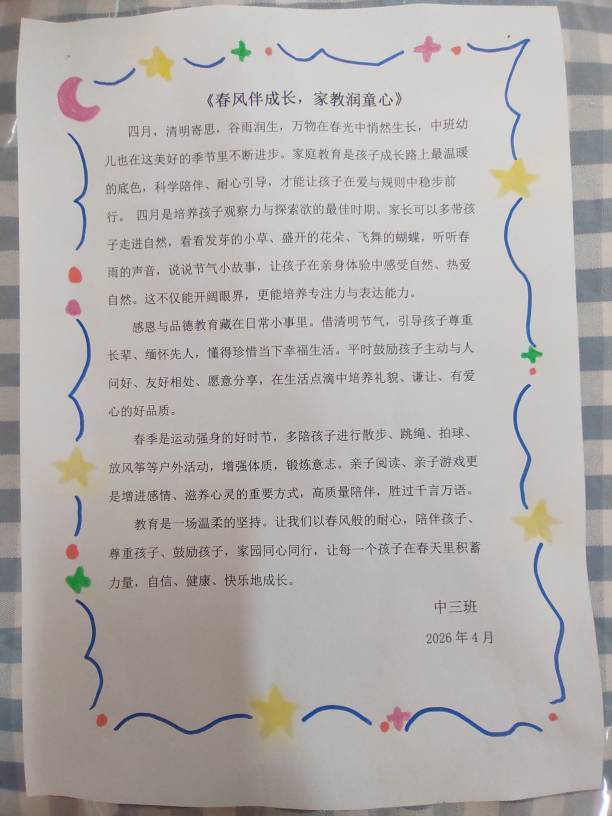 《春风伴成长，家教润童心》
四月，清明寄思，谷雨润生，万物在春光中悄然生长，中班幼
儿也在这美好的季节里不断进步。家庭教育是孩子成长路上最温暖
的底色，科学陪伴、耐心引导，才能让孩子在爱与规则中稳步前
行。 四月是培养孩子观察力与探索欲的最佳时期。家长可以多带孩
子走进自然，看看发芽的小草、盛开的花朵、飞舞的蝴蝶，听听春
雨的声音，说说节气小故事，让孩子在亲身体验中感受自然、热爱
自然。这不仅能开阔眼界，更能培养专注力与表达能力。
感恩与品德教育藏在日常小事里。借清明节气，引导孩子尊重
长辈、缅怀先人，懂得珍惜当下幸福生活。平时鼓励孩子主动与人
问好、友好相处、愿意分享，在生活点滴中培养礼貌、谦让、有爱
心的好品质。
春季是运动强身的好时节，多陪孩子进行散步、跳绳、拍球、
放风筝等户外活动，增强体质，锻炼意志。亲子阅读、亲子游戏更
是增进感情、滋养心灵的重要方式，高质量陪伴，胜过千言万语。
教育是一场温柔的坚持。让我们以春风般的耐心，陪伴孩子、
尊重孩子、鼓励孩子，家园同心同行，让每一个孩子在春天里积蓄
力量，自信、健康、快乐地成长。
中三班
2026 年 4 月